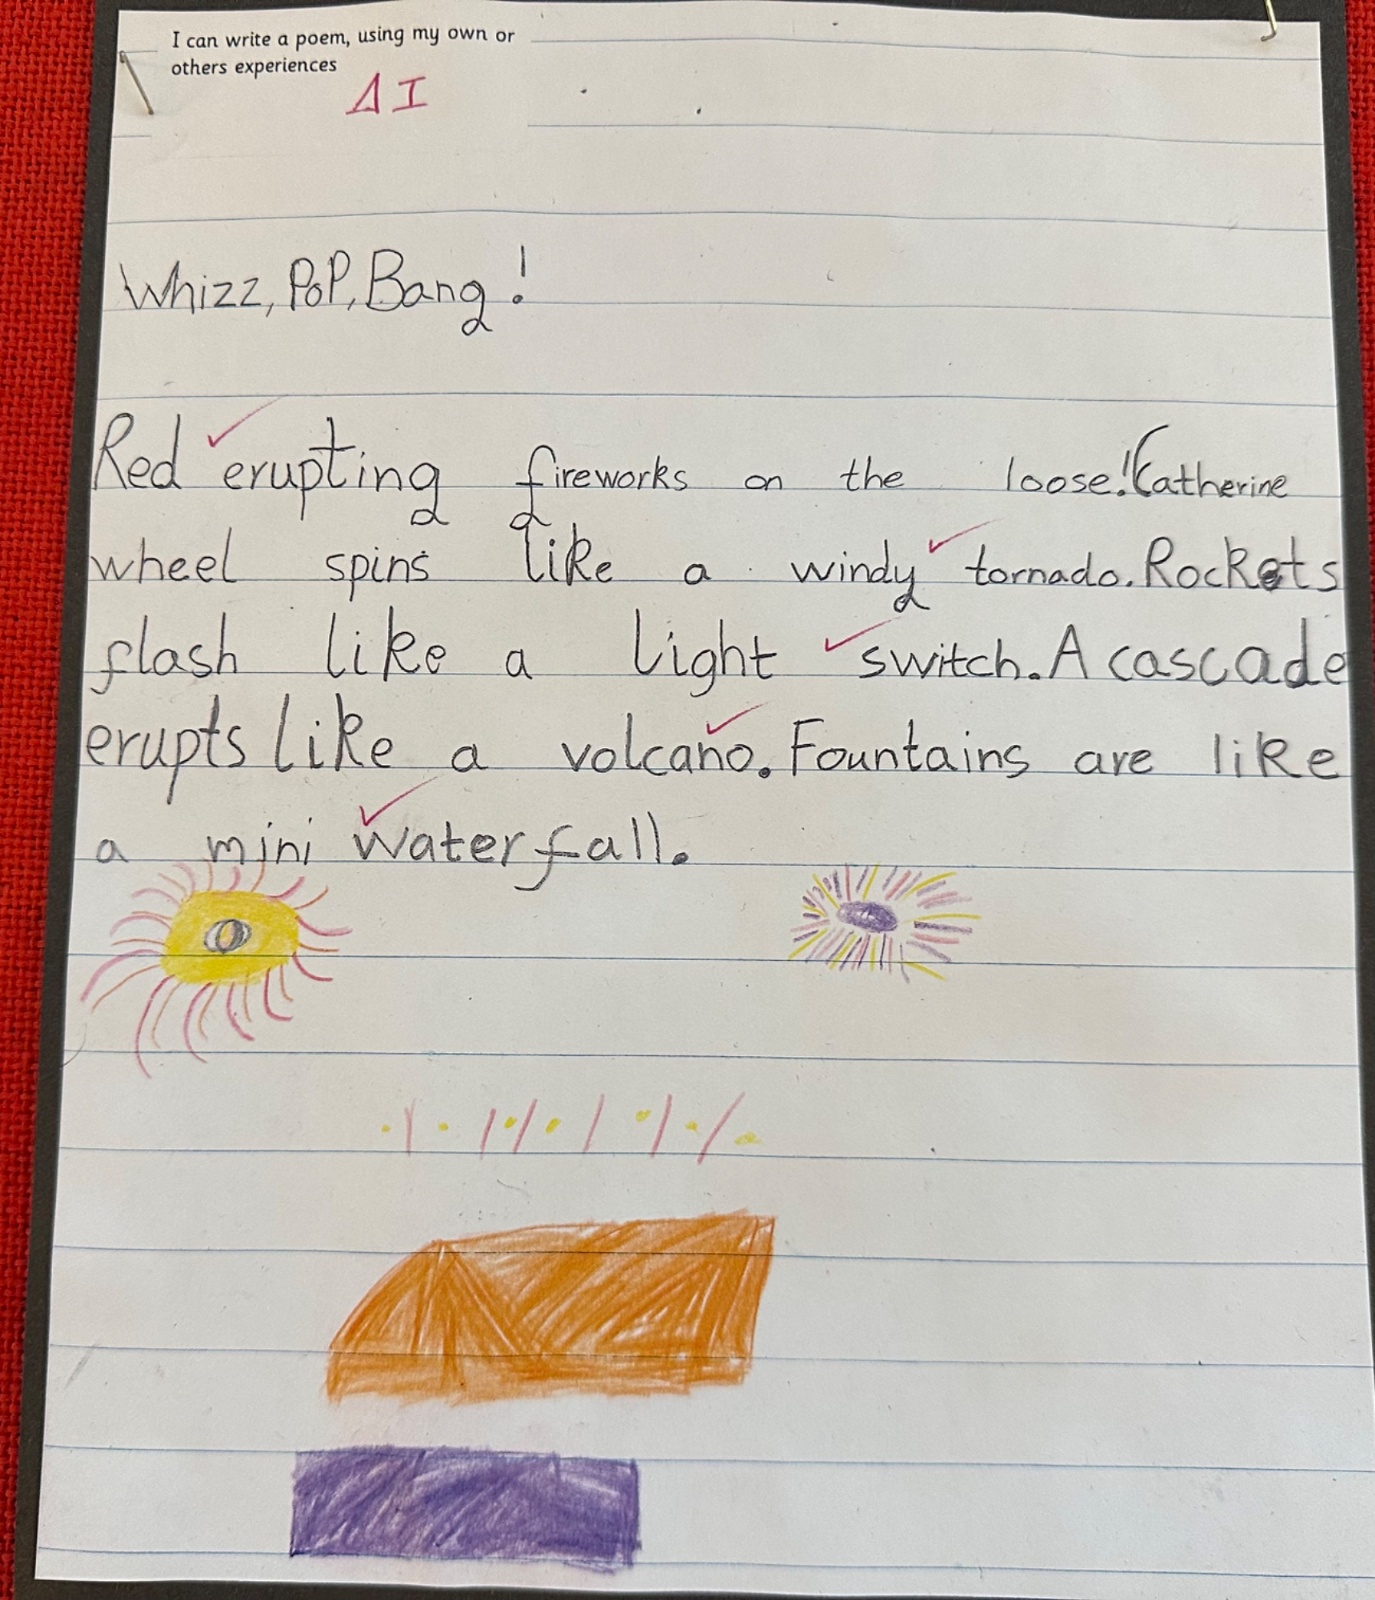 I can write a poem, using my own or
others experiences
Δ I
Whizz, PoP, Bang!
Red erupting fireworks on the loose! Catherine
wheel spins like a windy tornado. Rockets
flash like a light switch. A cascade
erupts like a volcano. Fountains are like
a mini waterfall.